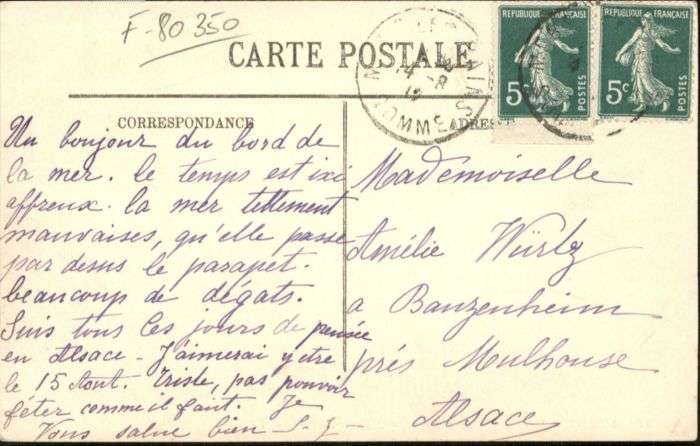 F-80350
CARTE POSTALE
REPUBLIQUE FRANÇAISE
5c POSTES
REPUBLIQUE FRANÇAISE
5c POSTES
SOMME
CORRESPONDANCE
ADRESSE
Un bonjour du bord de
la mer. le temps est ixi
affreux. la mer tellement
mauvaises, qu'elle passe
par desus le parapet.
beaucoup de dégats.
Suis tous les jours de pensée
en Alsace - J'aimerai y etre
le 15 Aout. Triste, pas pouvoir
fêter comme il faut. Je
Vous salue bien S. J.
Mademoiselle
Amélie Würtz
a Banzenheim
prés Mulhouse
Alsace